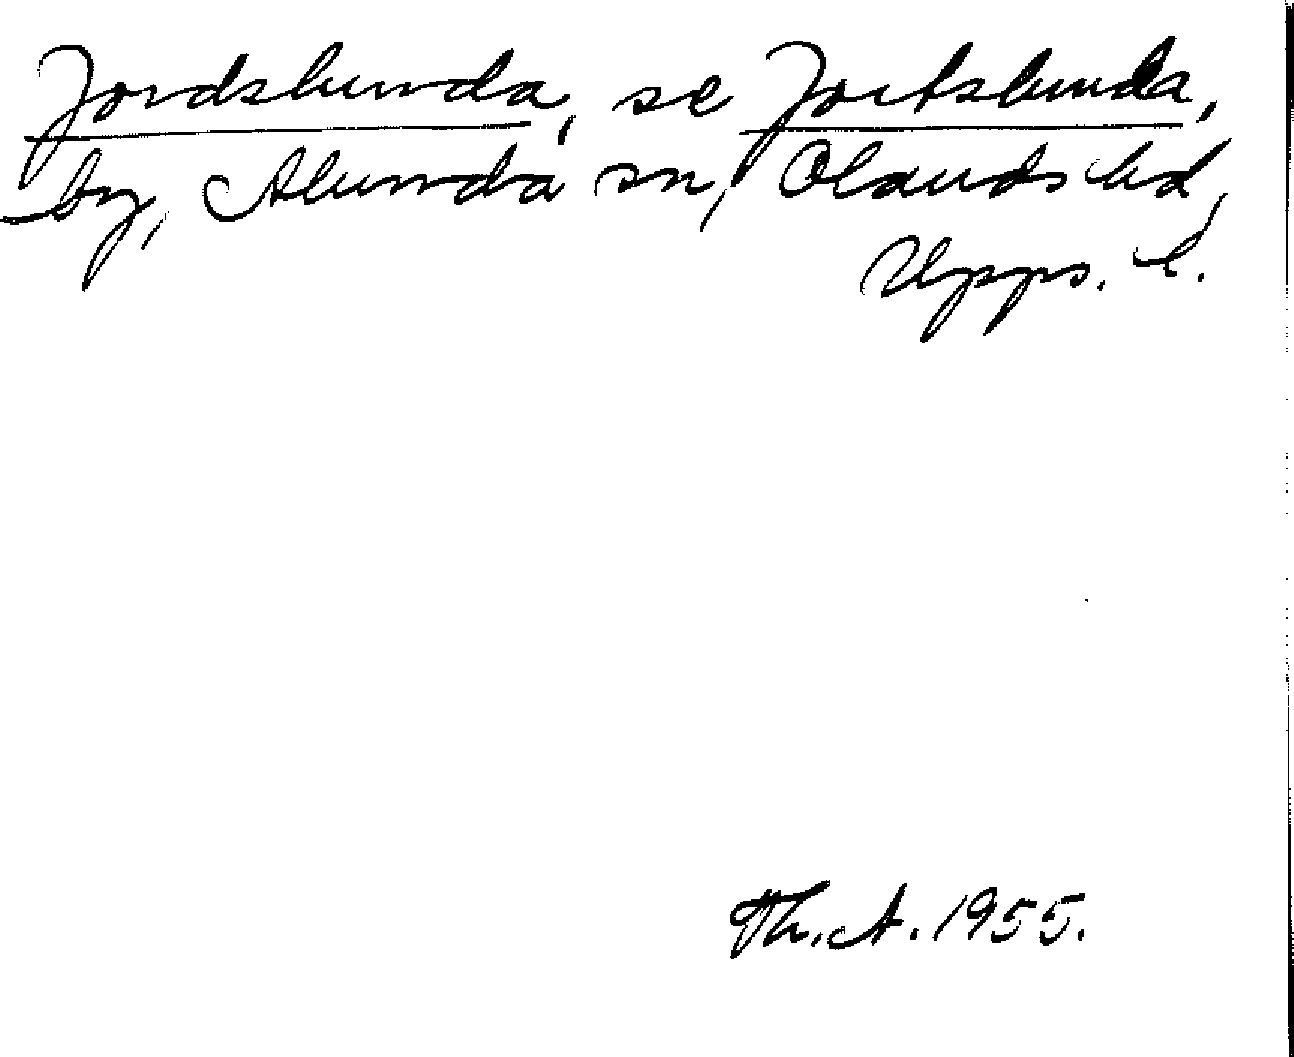 Jordslunda, se Jortslunda,
by, Alunda sn, Olands hd,
Upps. l.
Th. A. 1955.